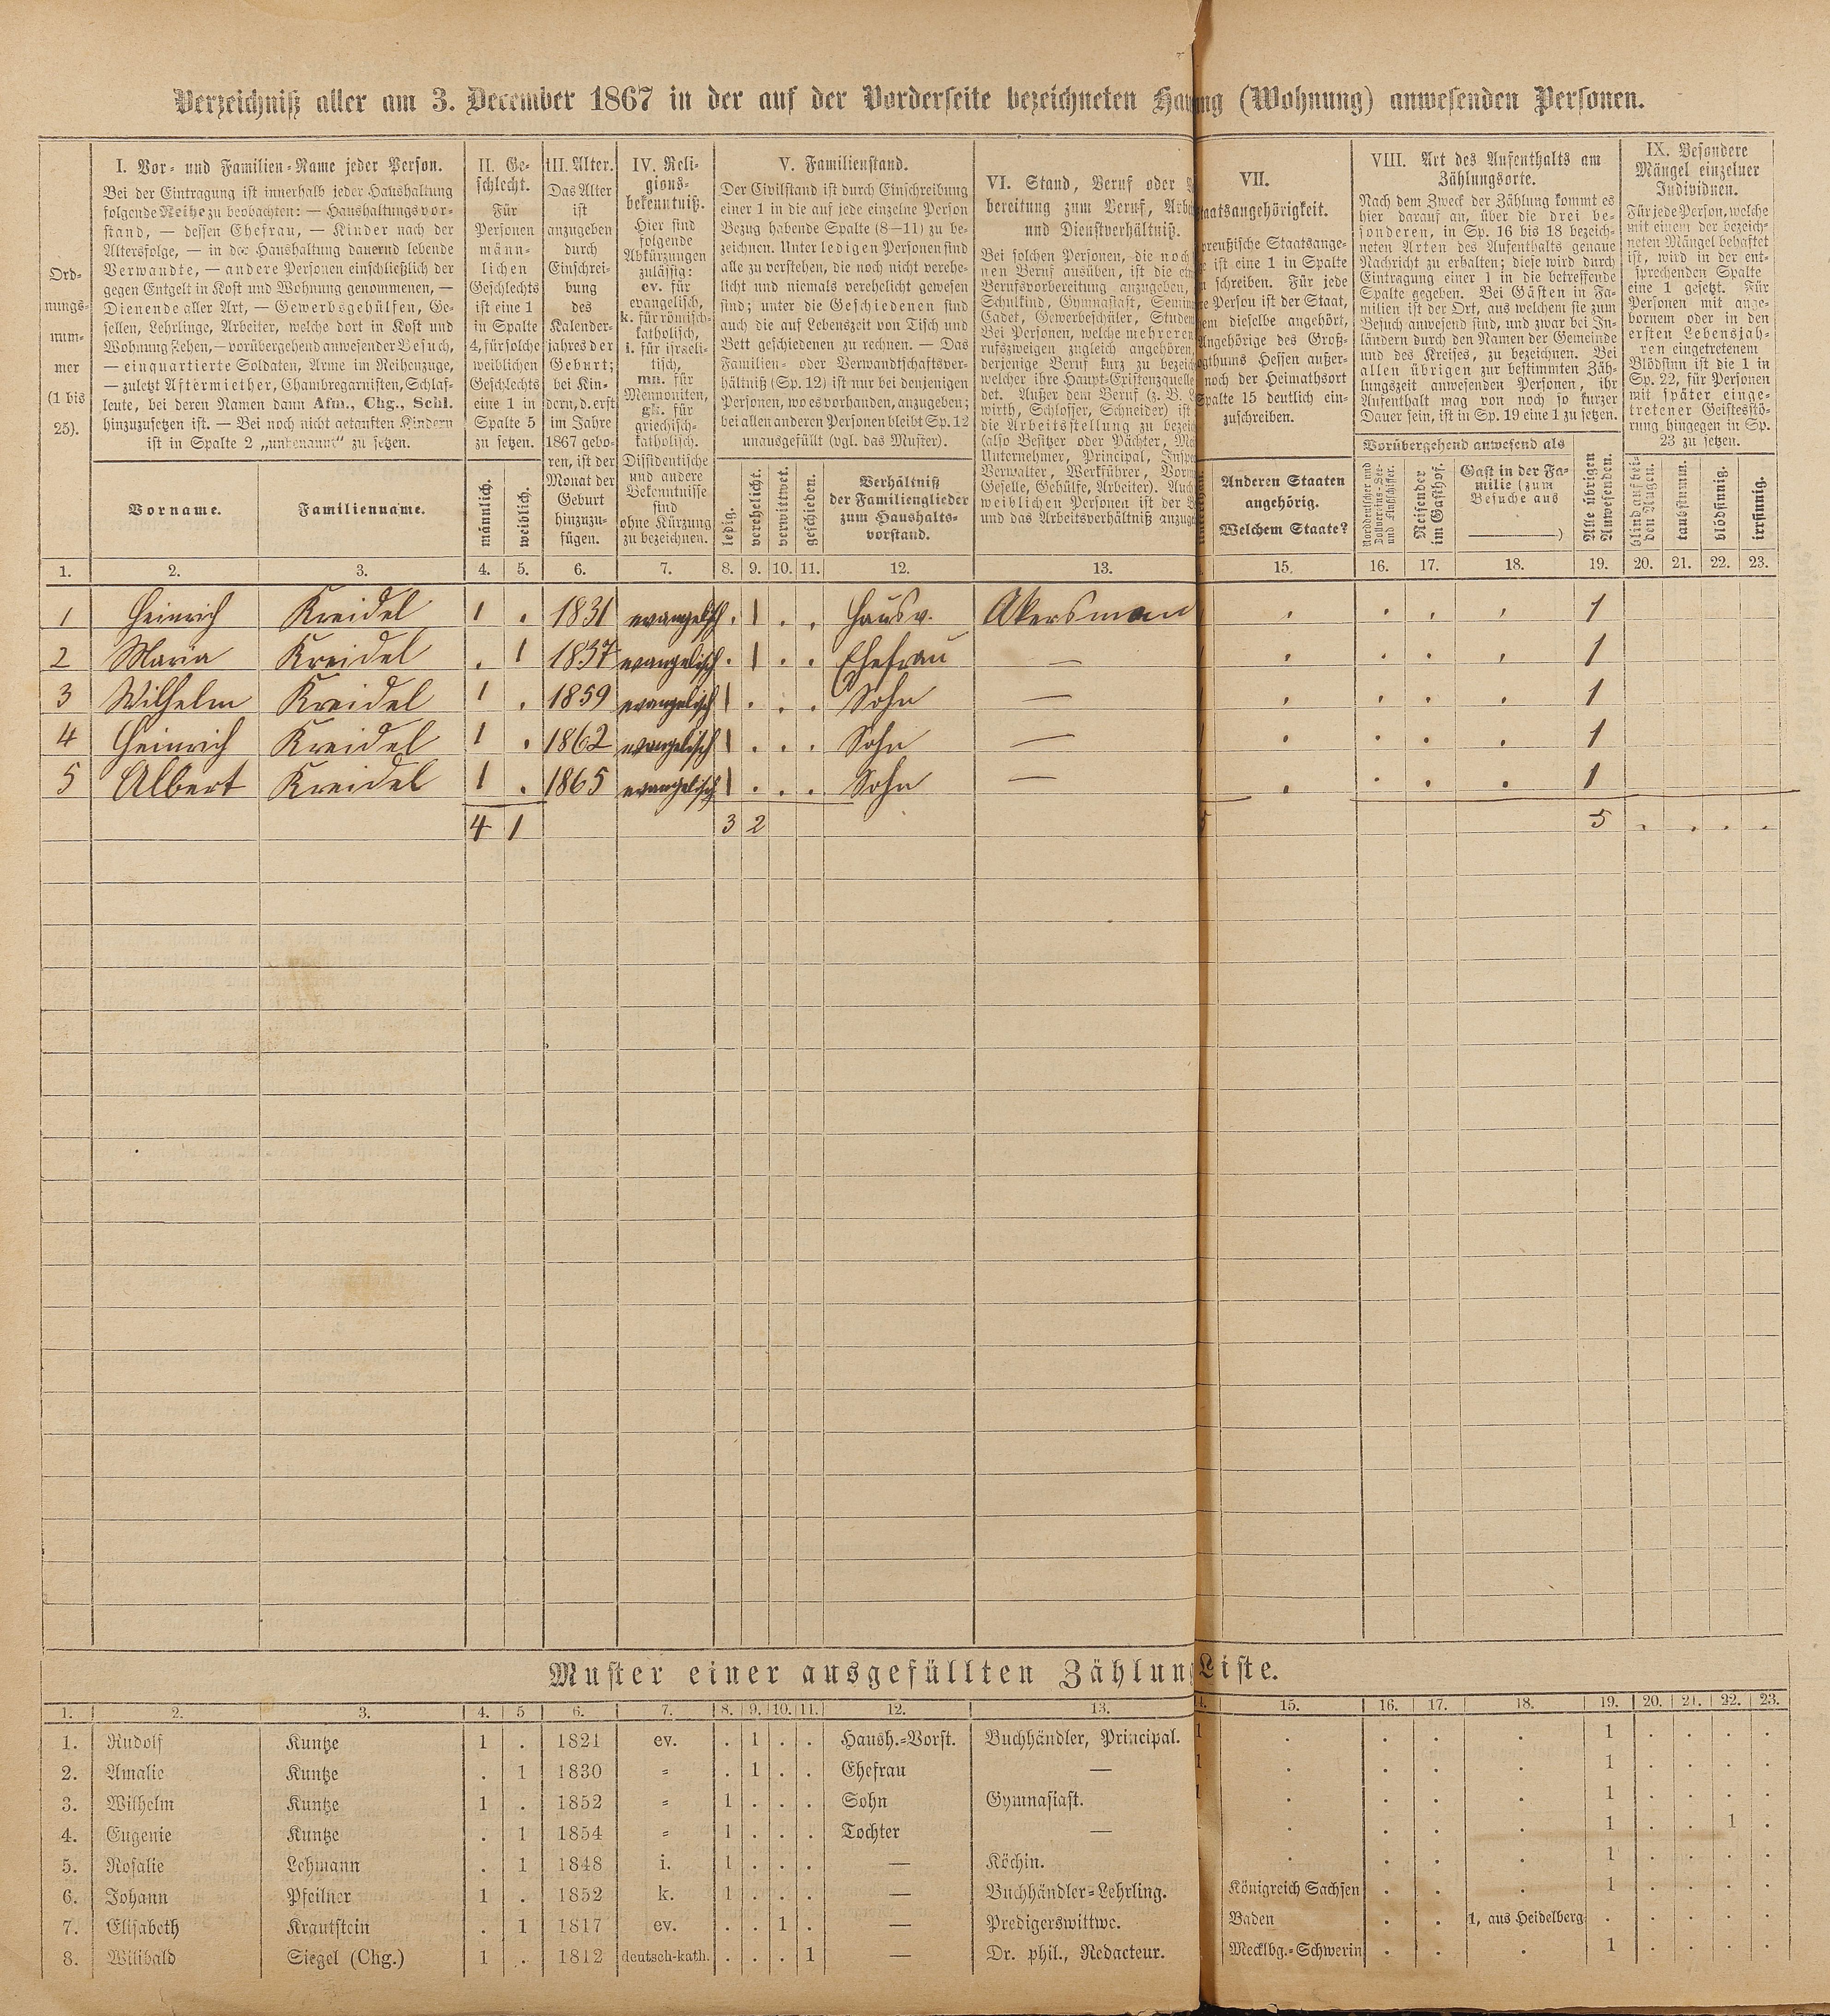 Verzeichniß aller am 3. December 1867 in der auf der Vorderseite bezeichneten Hau ng (Wohnung) anwesenden Personen.
Ord-
nungs-
num-
mer
(1 bis
25).
I. Vor- und Familien-Name jeder Person.
Bei der Eintragung ist innerhalb jeder Haushaltung
folgende Reihe zu beobachten: — Haushaltungsvor-
stand, — dessen Ehefrau, — Kinder nach der
Altersfolge, — in der Haushaltung dauernd lebende
Verwandte, — andere Personen einschließlich der
gegen Entgelt in Kost und Wohnung genommenen, —
Dienende aller Art, — Gewerbsgehülfen, Ge-
sellen, Lehrlinge, Arbeiter, welche dort in Kost und
Wohnung stehen, — vorübergehend anwesender Besuch,
— einquartierte Soldaten, Arme im Reihenzuge,
— zuletzt Aftermiether, Chambregarnisten, Schlaf-
leute, bei deren Namen dann Afm., Chg., Schl.
hinzuzusetzen ist. — Bei noch nicht getauften Kindern
ist in Spalte 2 „unbenannt“ zu setzen.
Vorname.
Familienname.
II. Ge-
schlecht.
Für
Personen
männ-
lichen
Geschlechts
ist eine 1
in Spalte
4, für solche
weiblichen
Geschlechts
eine 1 in
Spalte 5
zu setzen.
männlich.
weiblich.
III. Alter.
Das Alter
ist
anzugeben
durch
Einschrei-
bung
des
Kalender-
jahres der
Geburt;
bei Kin-
dern, d. erst
im Jahre
1867 gebo-
ren, ist der
Monat der
Geburt
hinzuzu-
fügen.
IV. Reli-
gions-
bekenntniß.
Hier sind
folgende
Abkürzungen
zulässig:
ev. für
evangelisch,
k. für römisch-
katholisch,
i. für israeli-
tisch,
mn. für
Mennoniten,
gk. für
griechisch-
katholisch.
Dissidentische
und andere
Bekenntnisse
sind
ohne Kürzung
zu bezeichnen.
V. Familienstand.
Der Civilstand ist durch Einschreibung
einer 1 in die auf jede einzelne Person
Bezug habende Spalte (8—11) zu be-
zeichnen. Unter ledigen Personen sind
alle zu verstehen, die noch nicht verehe-
licht und niemals verehelicht gewesen
sind; unter die Geschiedenen sind
auch die auf Lebenszeit von Tisch und
Bett geschiedenen zu rechnen. — Das
Familien- oder Verwandtschaftsver-
hältniß (Sp. 12) ist nur bei denjenigen
Personen, wo es vorhanden, anzugeben;
bei allen anderen Personen bleibt Sp. 12
unausgefüllt (vgl. das Muster).
ledig.
verehelicht.
verwittwet.
geschieden.
Verhältniß
der Familienglieder
zum Haushalts-
vorstand.
VI. Stand, Beruf oder
bereitung zum Beruf, Arb
und Dienstverhältniß.
Bei solchen Personen, die noch
nen Beruf ausüben, ist die
Berufsvorbereitung anzugeben,
Schulkind, Gymnasiast, Semin
Cadet, Gewerbeschüler, Studen
Bei Personen, welche mehreren
rufszweigen zugleich angehören,
derjenige Beruf kurz zu bezeich
welcher ihre Haupt-Existenzquelle
det. Außer dem Beruf (z. B.
wirth, Schlosser, Schneider) ist
die Arbeitsstellung zu bezeich
(also Besitzer oder Pächter,
Unternehmer, Principal, Inspe
Verwalter, Werkführer, Vorm
Geselle, Gehülfe, Arbeiter). Auch
weiblichen Personen ist der
und das Arbeitsverhältniß anzuge
VII.
taatsangehörigkeit.
preußische Staatsange-
ist eine 1 in Spalte
schreiben. Für jede
re Person ist der Staat,
em dieselbe angehört,
Angehörige des Groß-
ogthums Hessen außer-
noch der Heimathsort
Spalte 15 deutlich ein-
zuschreiben.
Anderen Staaten
angehörig.
Welchem Staate?
VIII. Art des Aufenthalts am
Zählungsorte.
Nach dem Zweck der Zählung kommt es
hier darauf an, über die drei be-
sonderen, in Sp. 16 bis 18 bezeich-
neten Arten des Aufenthalts genaue
Nachricht zu erhalten; diese wird durch
Eintragung einer 1 in die betreffende
Spalte gegeben. Bei Gästen in Fa-
milien ist der Ort, aus welchem sie zum
Besuch anwesend sind, und zwar bei In-
ländern durch den Namen der Gemeinde
und des Kreises, zu bezeichnen. Bei
allen übrigen zur bestimmten Zäh-
lungszeit anwesenden Personen, ihr
Aufenthalt mag von noch so kurzer
Dauer sein, ist in Sp. 19 eine 1 zu setzen.
Vorübergehend anwesend als
Norddeutscher und
Zollvereins-See-
und Flußschiffer.
Reisender
im Gasthof.
Gast in der Fa-
milie (zum
Besuche aus
)
Alle übrigen
Anwesenden.
IX. Besondere
Mängel einzelner
Individuen.
Für jede Person, welche
mit einem der bezeich-
neten Mängel behaftet
ist, wird in der ent-
sprechenden Spalte
eine 1 gesetzt. Für
Personen mit ange-
bornem oder in den
ersten Lebensjah-
ren eingetretenem
Blödsinn ist die 1 in
Sp. 22, für Personen
mit später einge-
tretener Geistesstö-
rung hingegen in Sp.
23 zu setzen.
blind auf bei-
den Augen.
taubstumm.
blödsinnig.
irrsinnig.
1. 2. 3. 4. 5. 6. 7. 8. 9. 10. 11. 12. 13. 15. 16. 17. 18. 19. 20. 21. 22. 23.
1 Heinrich Kreidel 1 . 1831 evangelisch . 1 . . Hausv. Akersmann . . . . 1
2 Maria Kreidel . 1 1837 evangelisch . 1 . . Ehefrau — . . . . 1
3 Wilhelm Kreidel 1 . 1859 evangelisch 1 . . . Sohn — . . . . 1
4 Heinrich Kreidel 1 . 1862 evangelisch 1 . . . Sohn — . . . . 1
5 Albert Kreidel 1 . 1865 evangelisch 1 . . . Sohn — . . . . 1
4 1 3 2 5 5 . . . .
Muster einer ausgefüllten Zählung Liste.
1. 2. 3. 4. 5 6. 7. 8. 9. 10. 11. 12. 13. 15. 16. 17. 18. 19. 20. 21. 22. 23.
1. Rudolf Kuntze 1 . 1821 ev. . 1 . . Haush.-Vorst. Buchhändler, Principal. 1 . . . . 1 . . . .
2. Amalie Kuntze . 1 1830 = . 1 . . Ehefrau — 1 . . . . 1 . . . .
3. Wilhelm Kuntze 1 . 1852 = 1 . . . Sohn Gymnasiast. 1 . . . . 1 . . . .
4. Eugenie Kuntze . 1 1854 = 1 . . . Tochter — . . . . 1 . . 1 .
5. Rosalie Lehmann . 1 1848 i. 1 . . . — Köchin. . . . . 1 . . . .
6. Johann Pfeilner 1 . 1852 k. 1 . . . — Buchhändler-Lehrling. Königreich Sachsen . . . 1 . . . .
7. Elisabeth Krautstein . 1 1817 ev. . . 1 . — Predigerswittwe. Baden . . 1, aus Heidelberg . . . . .
8. Wilibald Siegel (Chg.) 1 . 1812 deutsch-kath. . . . 1 — Dr. phil., Redacteur. Mecklbg.-Schwerin . . . 1 . . . .